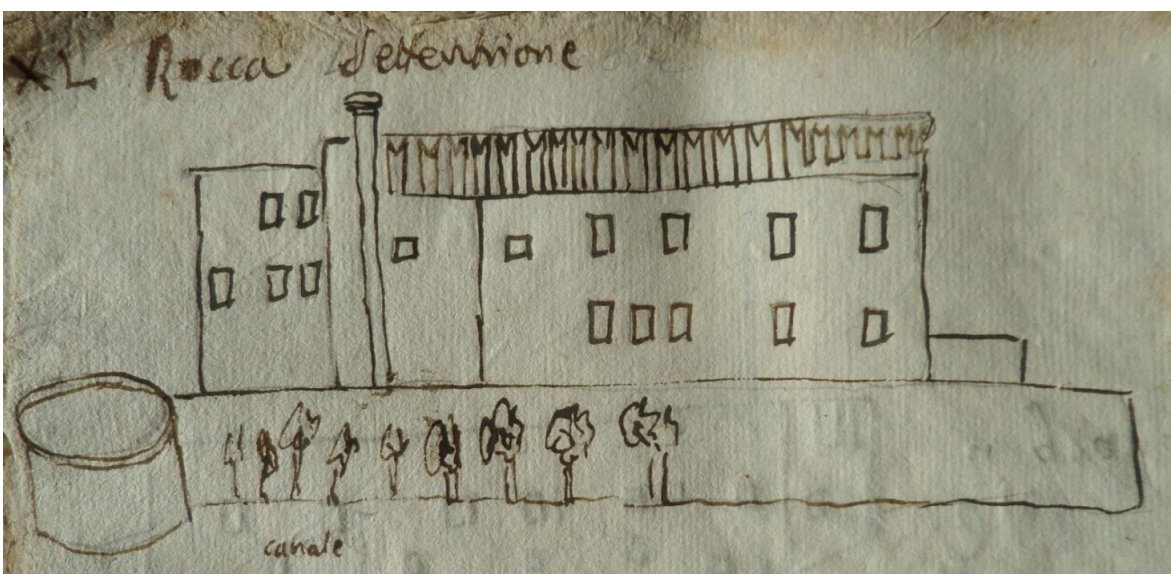 XL Rocca Settentrione
canale